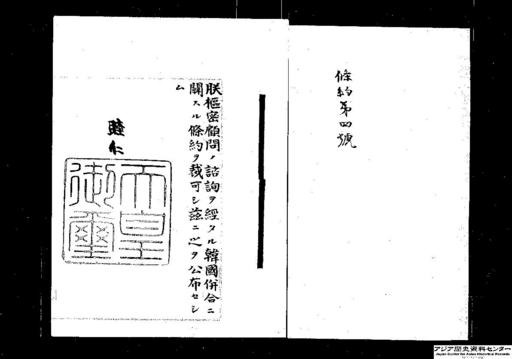 條約第四號
朕樞密顧問ノ諮詢ヲ經タル韓國併合ニ
關スル條約ヲ裁可シ茲ニ之ヲ公布セシ
ム
睦仁
天皇
御璽
アジア歴史資料センター
Japan Center for Asian Historical Records